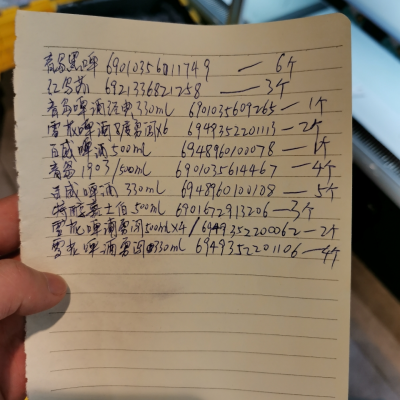 青岛黑啤 6901035611749 — 6个
红乌苏 6921336821258 — 3个
青岛啤酒经典330ml 6901035609265 — 1个
雪花啤酒 X6 6949352201113 — 2个
百威啤酒500ml 6948960100078 — 1个
青岛1903/500ml 6901035614467 — 4个
百威啤酒 330ml 6948960100108 — 5个
特醇嘉士伯500ml 6901672913206 — 3个
雪花啤酒 500mlX4/6949352200062 — 2个
雪花啤酒 330ml 6949352201106 — 4个